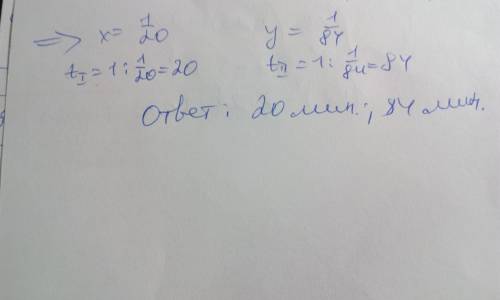 ⇒ x = 1/20 y = 1/84
t_I = 1 : 1/20 = 20 t_II = 1 : 1/84 = 84
Ответ: 20 мин.; 84 мин.